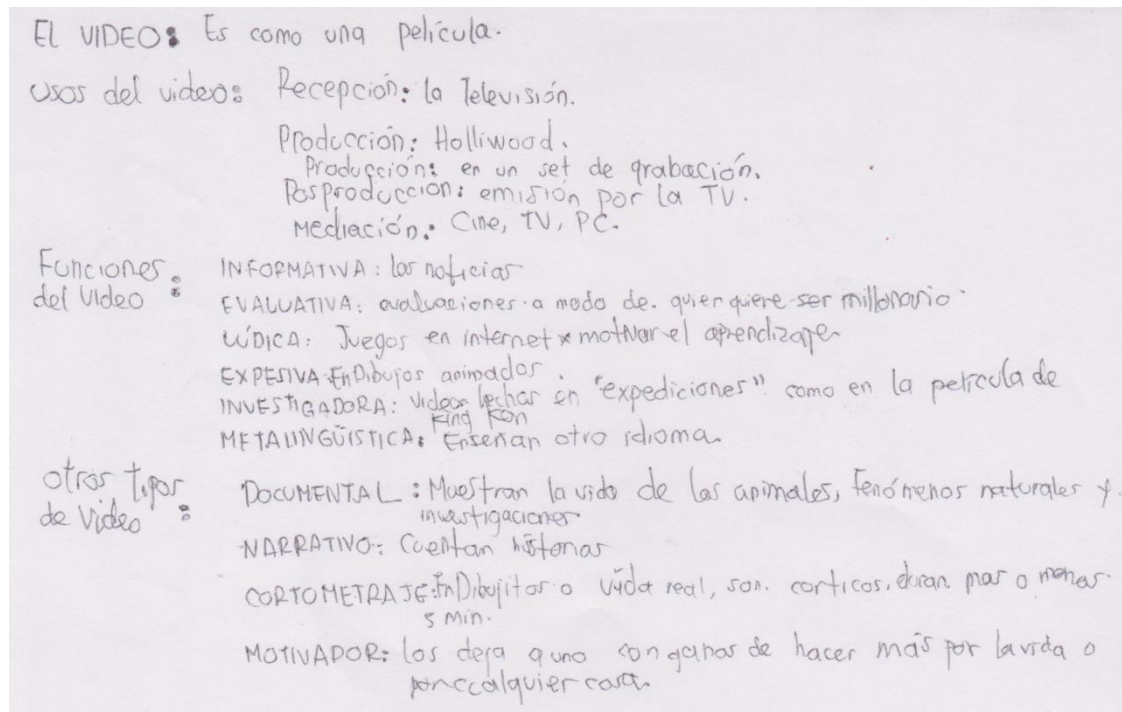 EL VIDEO: Es como una película.
Usos del video: Recepción: la Televisión.
Producción: Holliwood.
Producción: en un set de grabación.
Posproducción: emisión por la TV.
Mediación: Cine, TV, PC.
Funciones del video:
INFORMATIVA: las noticias
EVALUATIVA: evaluaciones a modo de. quien quiere ser millonario.
LÚDICA: Juegos en internet x motivar el aprendizaje
EXPESIVA: En Dibujos animados.
INVESTIGADORA: videos hechos en "expediciones" como en la película de
King Kon
METALINGÜÍSTICA: Enseñan otro idioma.
otros tipos de video:
DOCUMENTAL: Muestran la vida de los animales, fenómenos naturales y
investigaciones
NARRATIVO: Cuentan historias
CORTOMETRAJE: En Dibujitos o vida real, son. corticos. duran mas o menos
5 min.
MOTIVADOR: los deja a uno con ganas de hacer más por la vida o
por cualquier cosa.